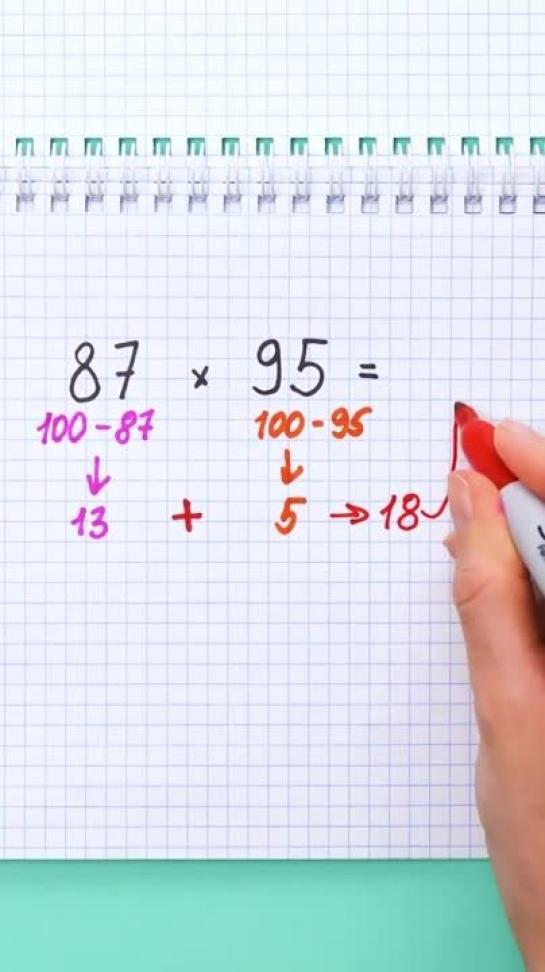 87 × 95 =
100 - 87 100 - 95
↓ ↓
13 + 5 → 18